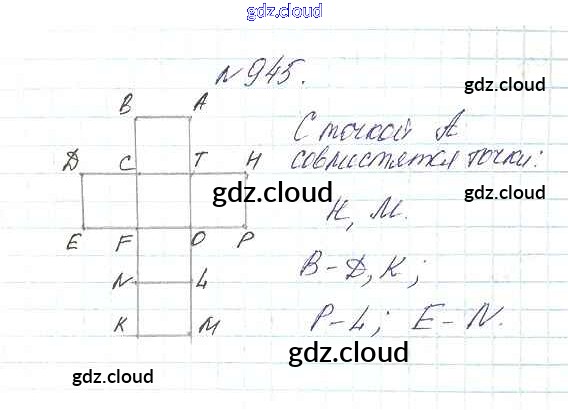 gdz.cloud
N945.
gdz.cloud
B A
С точкой А
D C T H
совместятся точки:
gdz.cloud
H, M.
E F O P
B-D, K;
N L
P-L; E-N.
K M
gdz.cloud
gdz.cloud